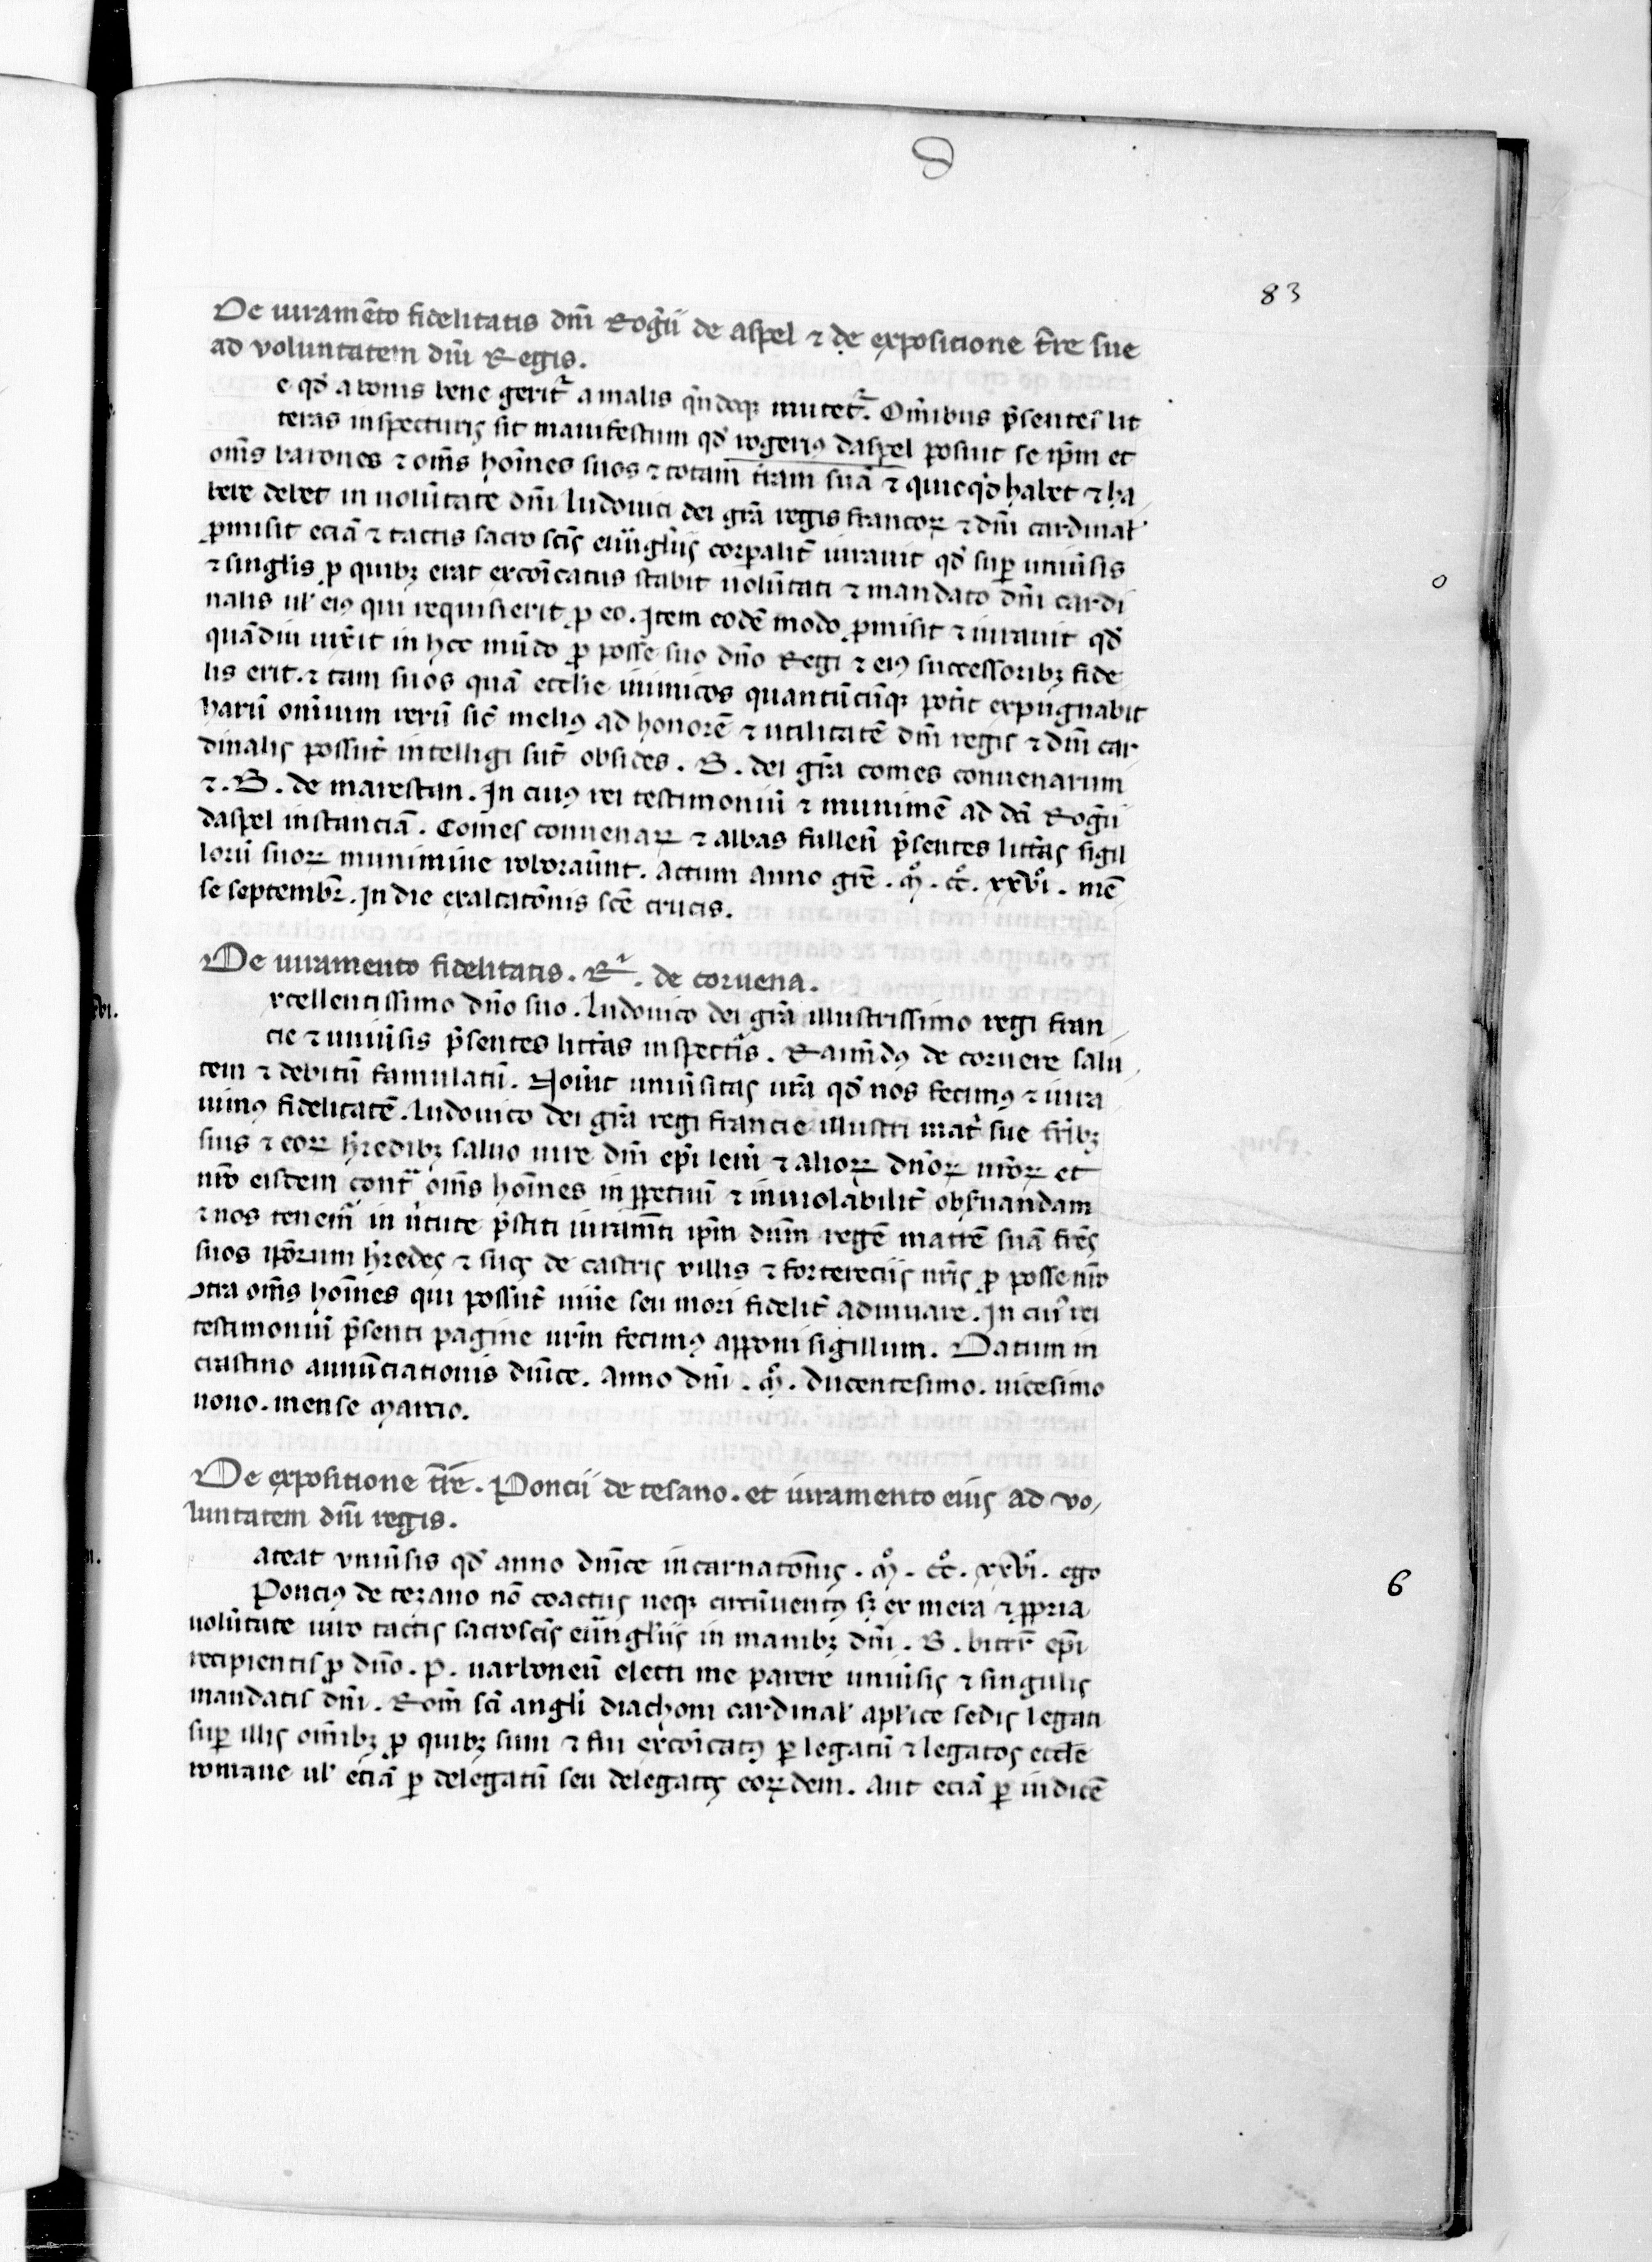 83
De iuramẽto fidelitatis dñi Rog̃ii de aspel ⁊ de expositione t̃re sue
ad voluntatem dñi Regis.
e qd̛ a bonis bene geritᷣ a malis q̃ndoqꝫ mutetᷣ. Om̃ibus p̃sentes lit
teras inspecturis sit manifestum qd̛ rogeriꝰ daspel posuit se ip̃m et
om̃s barones ⁊ om̃s hoĩes suos ⁊ totam t̃ram suã ⁊ quicq̛d habet ⁊ ha,
bere debet in volũtate dñi ludouici dei gr̃a regis francoꝝ ⁊ dñi cardinal̛
ꝓmisit eciã ⁊ tactis sacro sc̃is euũgl̃iis corꝑalit̃ iurauit qd̛ suꝑ uniũsis
⁊ singl̃is ꝓ quibꝫ erat excõicatus stabit volũtati ⁊ mandato dñi cardi
nalis ul̛ eiꝰ qui requisierit ꝓ eo. Item eodẽ modo ꝓmisit ⁊ iurauit qd̛
quãdiu uix̃it in hoc mũdo ꝓ posse suo dño Regi ⁊ eiꝰ successoribꝫ fide
lis erit. ⁊ tam suos quã eccl̃ie inimicos quantũcũqꝫ pot̃it expugnabit
harũ omnium rerũ sic̃ meliꝰ ad honorẽ ⁊ utilitatẽ dñi regis ⁊ dñi car
dinalis possũt intelligi sũt obsides. B. dei gr̃a comes conuenarum
⁊. B. de marestan. In cuiꝰ rei testimoniũ ⁊ munimẽ ad dc̃i Rog̃ii
daspel instanciã. Comes conuenaꝝ ⁊ abbas fulleñ p̃sentes litt̃as sigil
lorũ suoꝝ munimine roboraũnt. Actum anno gr̃e. m̊. cc̊. xxvi̊. mẽ
se septembr̃. In die exaltatõnis sc̃e crucis.
De iuramento fidelitatis. Rᷣ. de coruena.
xcellentissimo dño suo. ludouico dei gr̃a illustrissimo regi fran,
cie ⁊ uniũsis p̃sentes litt̃as inspect̃is. Raim̃dꝰ de coruere salu,
tem ⁊ debitũ famulatũ. Noưit uniũsitas ur̃a qd̛ nos fecimꝰ ⁊ iura
uimꝰ fidelitatẽ. ludouico dei gr̃a regi francie illustri mat̛ sue fr̃ibꝫ
suis ⁊ eoꝝ h̛redibꝫ saluo iure dñi ep̃i ⁊ alioꝝ dñoꝝ nr̃oꝝ et
nr̃o eisdem contᷣ om̃s hoĩes in ꝑpetuũ ⁊ inuiolabilit̃ obs̛uandam
⁊ nos tenem̛ in ũtute p̃stiti iuram̃ti ip̃m dñm regẽ matrẽ suã fr̃es
suos ip̃orum h̛redes ⁊ suos de castris villis ⁊ fortereciis nr̃is ꝓ posse nr̃o
ↄtra om̃s hoĩes qui possũt uiũe seu mori fidelit̃ adiuuare. In cui̛ rei
testimoniũ p̃senti pagine nr̃m fecimꝰ apponi sigillum. Datum in
crastino annũciationis dñice. Anno dñi. m̊. ducentesimo. uicesimo
nono. mense marcio.
De expositione t̃re. Poncii de tesano. et iuramento eius ad vo,
luntatem dñi regis.
ateat vniũsis qd̛ anno dñice incarnatõnis. m̊. cc̊. xxvi̊. ego
Ponciꝰ de tezano nõ coactus neqꝫ circũuentꝰ sꝫ ex mera ⁊ ꝓpria
volũtate iuro tactis sacrosc̃is euũgl̃iis in manibꝫ dñi. B. bitt̃r ep̃i
recipientis ꝓ dño. P. narboneñ electi me parere uniũsis ⁊ singulis
mandatis dñi. Rom̃ sc̃i angl̃i diachoni cardinal̛ apl̃ice sedis legati
suꝑ illis om̃ibꝫ ꝓ quibꝫ sum ⁊ fui excõicatꝰ ꝑ legatũ ⁊ legatos eccl̃e
romane ul̛ eciã ꝑ delegatũ seu delegatos eoꝝdem. Aut eciã ꝑ iudicẽ
6